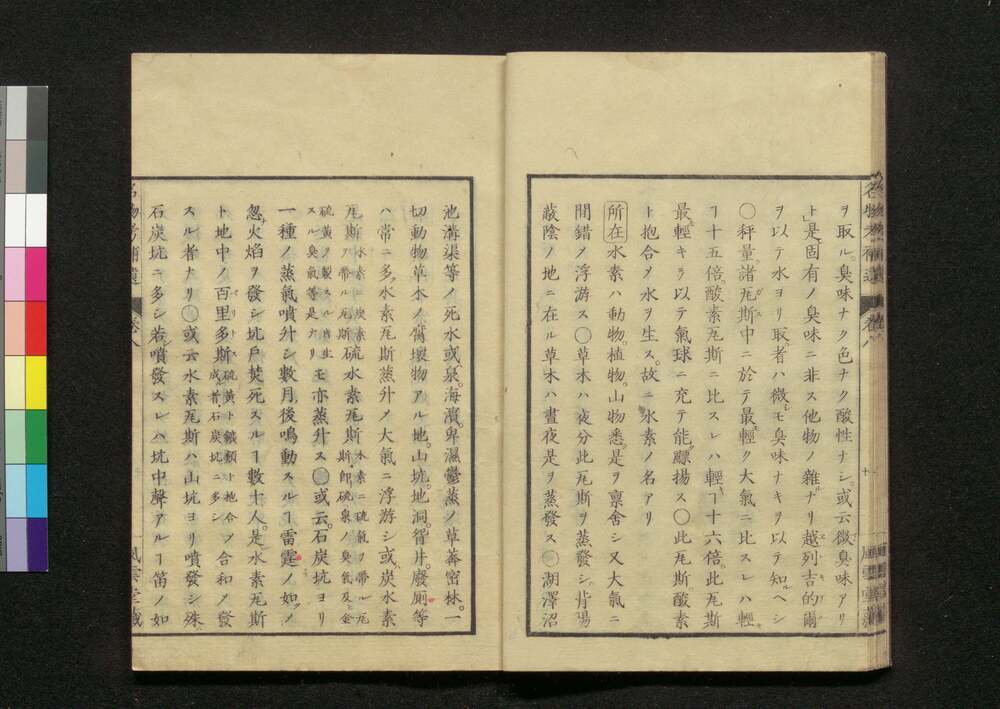 ヲ取ル。臭味ナク色ナク酸性ナシ。或云微臭味アリ
ト是固有ノ臭味ニ非ス他物ノ雜ナリ越列吉的爾
ヲ以テ水ヨリ取者ハ微モ臭味ナキヲ以テ知ヘシ
○秤量諸瓦斯中ニ於テ最輕ク大氣ニ比スレハ輕
ヿ十五倍。酸素瓦斯ニ比スレハ輕ヿ十六倍。此瓦斯
最輕キヲ以テ氣球ニ充テ能飃揚ス○此瓦斯酸素
ト抱合ノ水ヲ生ス。故ニ水素ノ名アリ
所在 水素ハ動物。植物。山物悉。是ヲ稟舍シ又大氣ニ
間錯ノ浮游ス○草木ハ夜分此瓦斯ヲ蒸發シ。背陽
蔽陰ノ地ニ在ル草木ハ晝夜是ヲ蒸發ス○湖澤沼
池溝渠等ノ死水或泉。海濱。卑濕鬱蒸ノ草莾密林。一
切動物草木ノ腐壞物アル地。山坑。地洞。眢井。廢厠等
ハ常ニ多。水素瓦斯蒸升ノ大氣ニ浮游シ或炭水素
瓦斯水素ニ炭素ヲ帶ル瓦斯硫水素瓦斯水素ニ硫氣ヲ帶ル瓦斯即硫泉ノ臭氣及金
硫黃ノ製スル時生スル臭氣等是ナリモ亦蒸升ス○或云。石炭坑ヨリ
一種ノ蒸氣噴升シ數月後鳴動スルヿ雷霆ノ如ノ
忽火焰ヲ發シ坑戶焚死スルヿ數十人。是水素瓦斯
ト地中ノ百里多斯硫黃ト鐵類ト抱合ノ成者石炭坑ニ多シト合和ノ發
スル者ナリ○或云水素瓦斯ハ山坑ヨリ噴發シ殊
石炭坑ニ多シ若噴發スレハ坑中聲アルヿ笛ノ如
名物考補遺
卷八
風雲堂藏